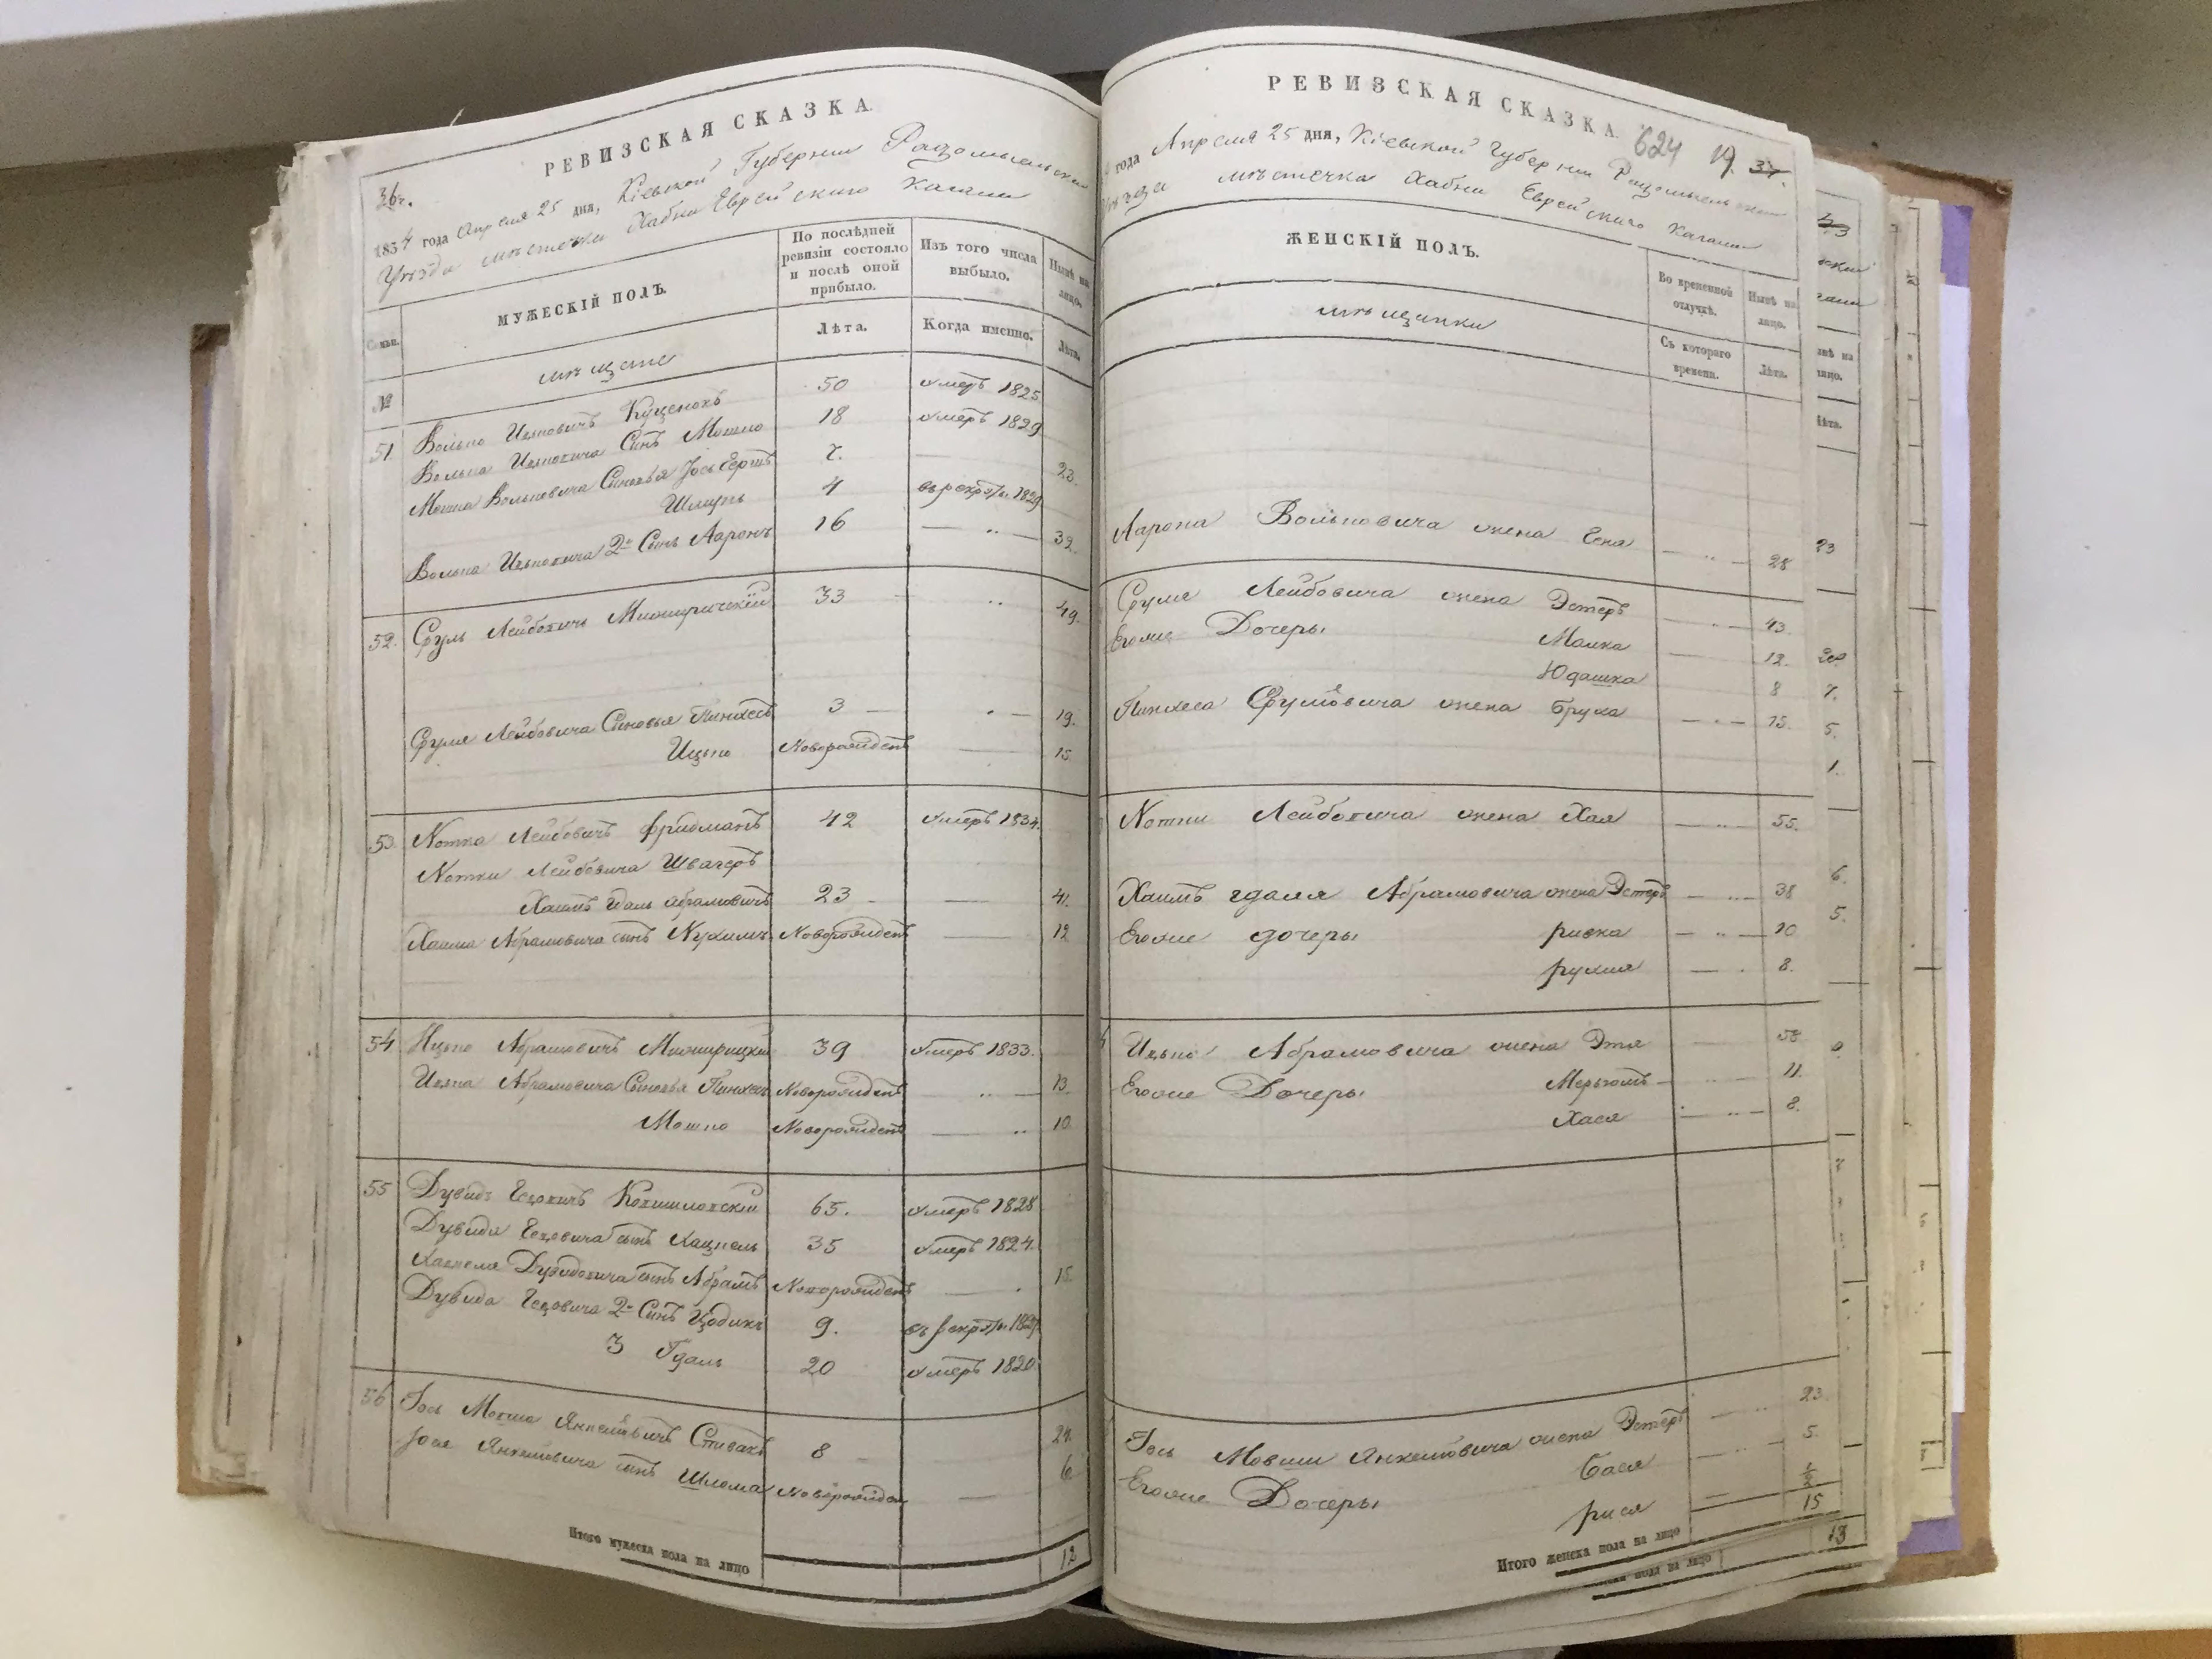 РЕВИЗСКАЯ СКАЗКА.
36.
1834 года Апреля 25 дня, Кіевской Губерніи Радомысльскаго
Уѣзда мѣстечка Хабна Еврейскаго Кагала
МУЖЕСКІЙ ПОЛЪ.
По послѣдней ревизіи состояло и послѣ оной прибыло.
Изъ того числа выбыло.
Нынѣ на лицо.
Семьи.
Лѣта.
Когда именно.
Лѣта.
№
мѣщане
51 Волько Ицковичъ Куценокъ 50 умеръ 1825
Волька Ицковича Сынъ Мошко 18 умеръ 1829
Мошка Вольковича Сыновья Іось Гершъ 7. — 23.
Шмуль 4 въ рекруты 1829
Волька Ицковича 2й Сынъ Ааронъ 16 — 32.
52. Сруль Лейбовичъ Межирическій 33 49.
Сруля Лейбовича Сыновья Пинхесъ 3 — 19.
Ицко Новорожденъ — 15
53. Нотка Лейбовичъ Фридманъ 42 умеръ 1834.
Нотки Лейбовича Швагеръ
Хаимъ Гдаль Абрамовичъ 23 — 41.
Хаима Абрамовича сынъ Нухимъ Новорожденъ — 12
54 Ицко Абрамовичъ Межирицкій 39 умеръ 1833.
Ицка Абрамовича Сыновья Пинхесъ Новорожденъ — 13.
Мошко Новорожденъ — 10
55 Дувидъ 65. умеръ 1828
Дувида сынъ Хацкель 35 умеръ 1824.
Хацкеля Дувидовича сынъ Абрамъ Новорожденъ — 15.
Дувида 2й Сынъ Цодикъ 9. въ рекруты 1827
3 Гдаль 20 умеръ 1820
56 Іось Мовша Янкелевичъ Спивакъ 8 — 24.
Іося Янкелевича сынъ Шлома Новорожден — 6
Итого мужеска пола на лицо 12
РЕВИЗСКАЯ СКАЗКА.
624 19. 37.
года Апреля 25 дня, Кіевской Губерніи Радомысльскаго
Уѣзда мѣстечка Хабна Еврейскаго Кагала
ЖЕНСКІЙ ПОЛЪ.
Во временной отлучкѣ.
Нынѣ на лицо.
Съ котораго времени.
Лѣта.
мѣщанки
Аарона Вольковича жена Еня — 28
Сруля Лейбовича жена Эстеръ — 43.
Егоже Дочеры Малка — 12.
Юдашка 8
Пинхеса Срулевича жена Бруха — 15.
Нотки Лейбовича жена Хая — 55.
Хаимъ гдаля Абрамовича жена Эстеръ — 38
Егоже дочеры ривка — 10
рухля — 8.
Ицко Абрамовича жена Этя 58
Егоже Дочеры Мерьямъ — 11.
Хася — 8.
Іось Мовши Янкелевича жена Эстеръ — 23.
Егоже Дочеры Бася — 5.
рися — ½
Итого женска пола на лицо 15
пола на лицо 13